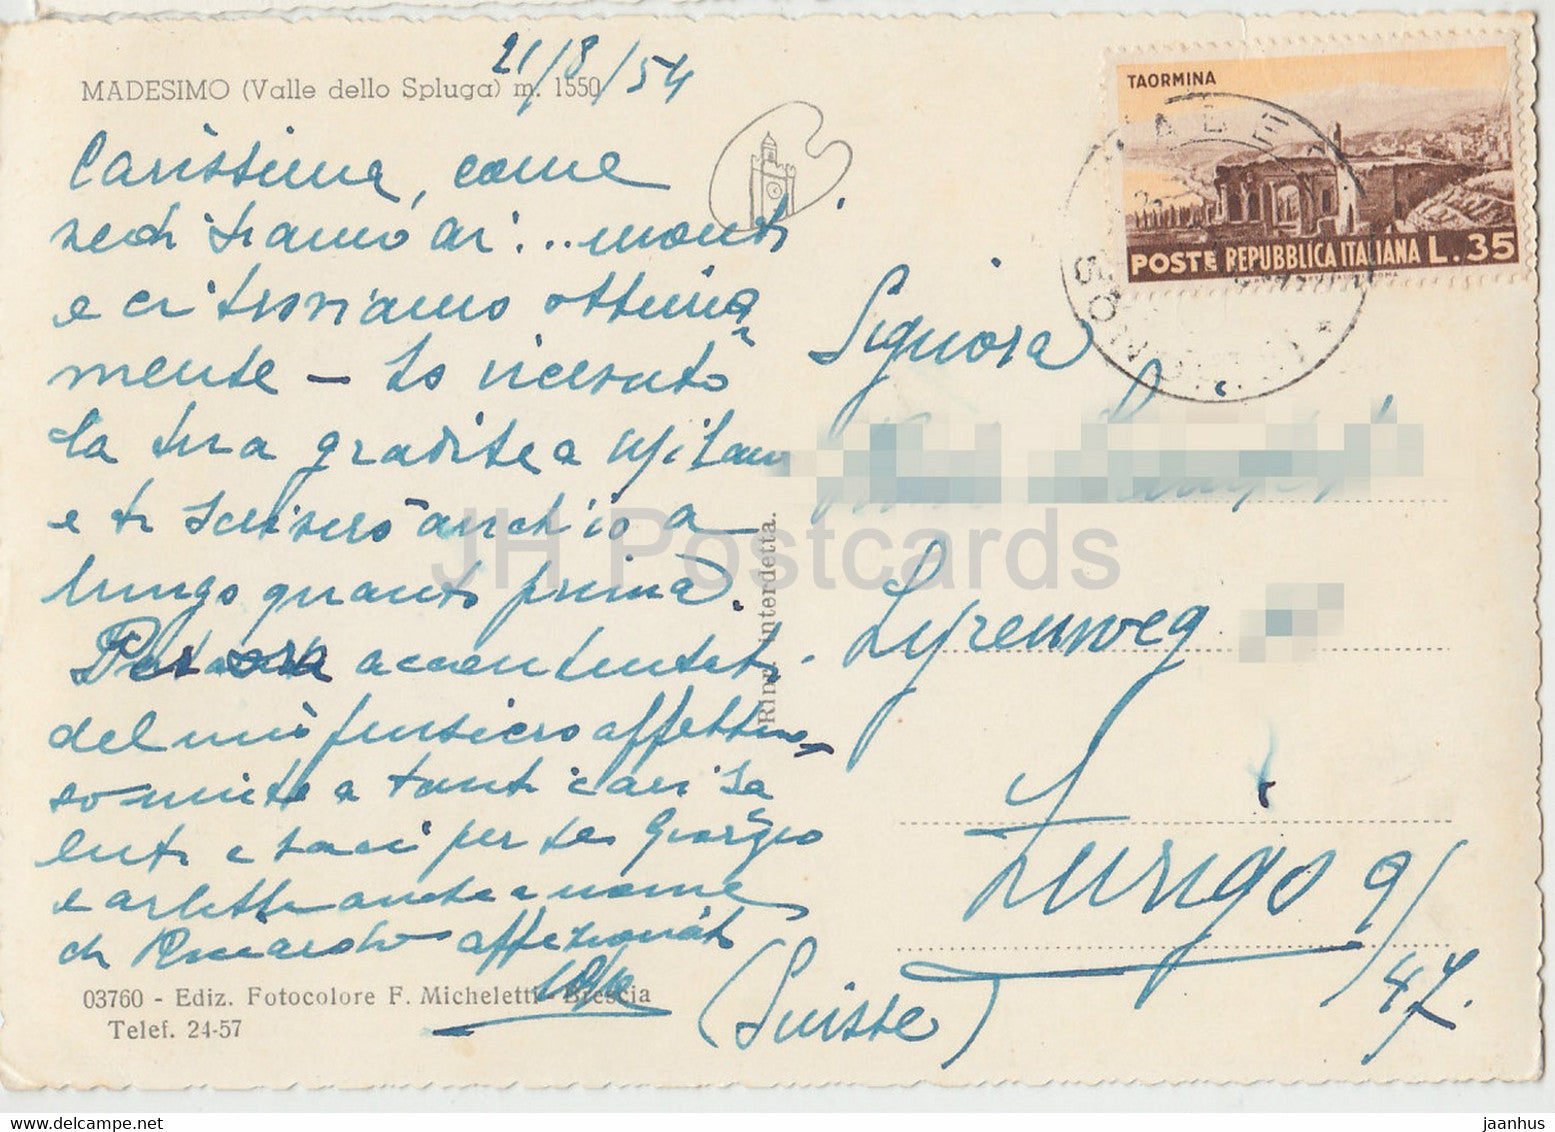 21/8/54
MADESIMO (Valle dello Spluga) m. 1550
Carissima, come
vedi siamo ai ... monti
e ci troviamo ottima
mente - Ho ricevuto
la tua gradita a Milano
e ti scriverò anch'io a
lungo quanto prima.
Per ora accontentati
del mio pensiero affettuo
so unito a tanti cari sa
luti e baci per te Giorgio
e Arlette anche a nome
di affezionati
03760 - Ediz. Fotocolore F. Micheletti - Brescia
Telef. 24-57
Ripr. interdetta.
TAORMINA
POSTE REPUBBLICA ITALIANA L.35
Signora
Lyrenweg
Zurigo 9/
47.
(Suisse)
JH Postcards
jaanhus